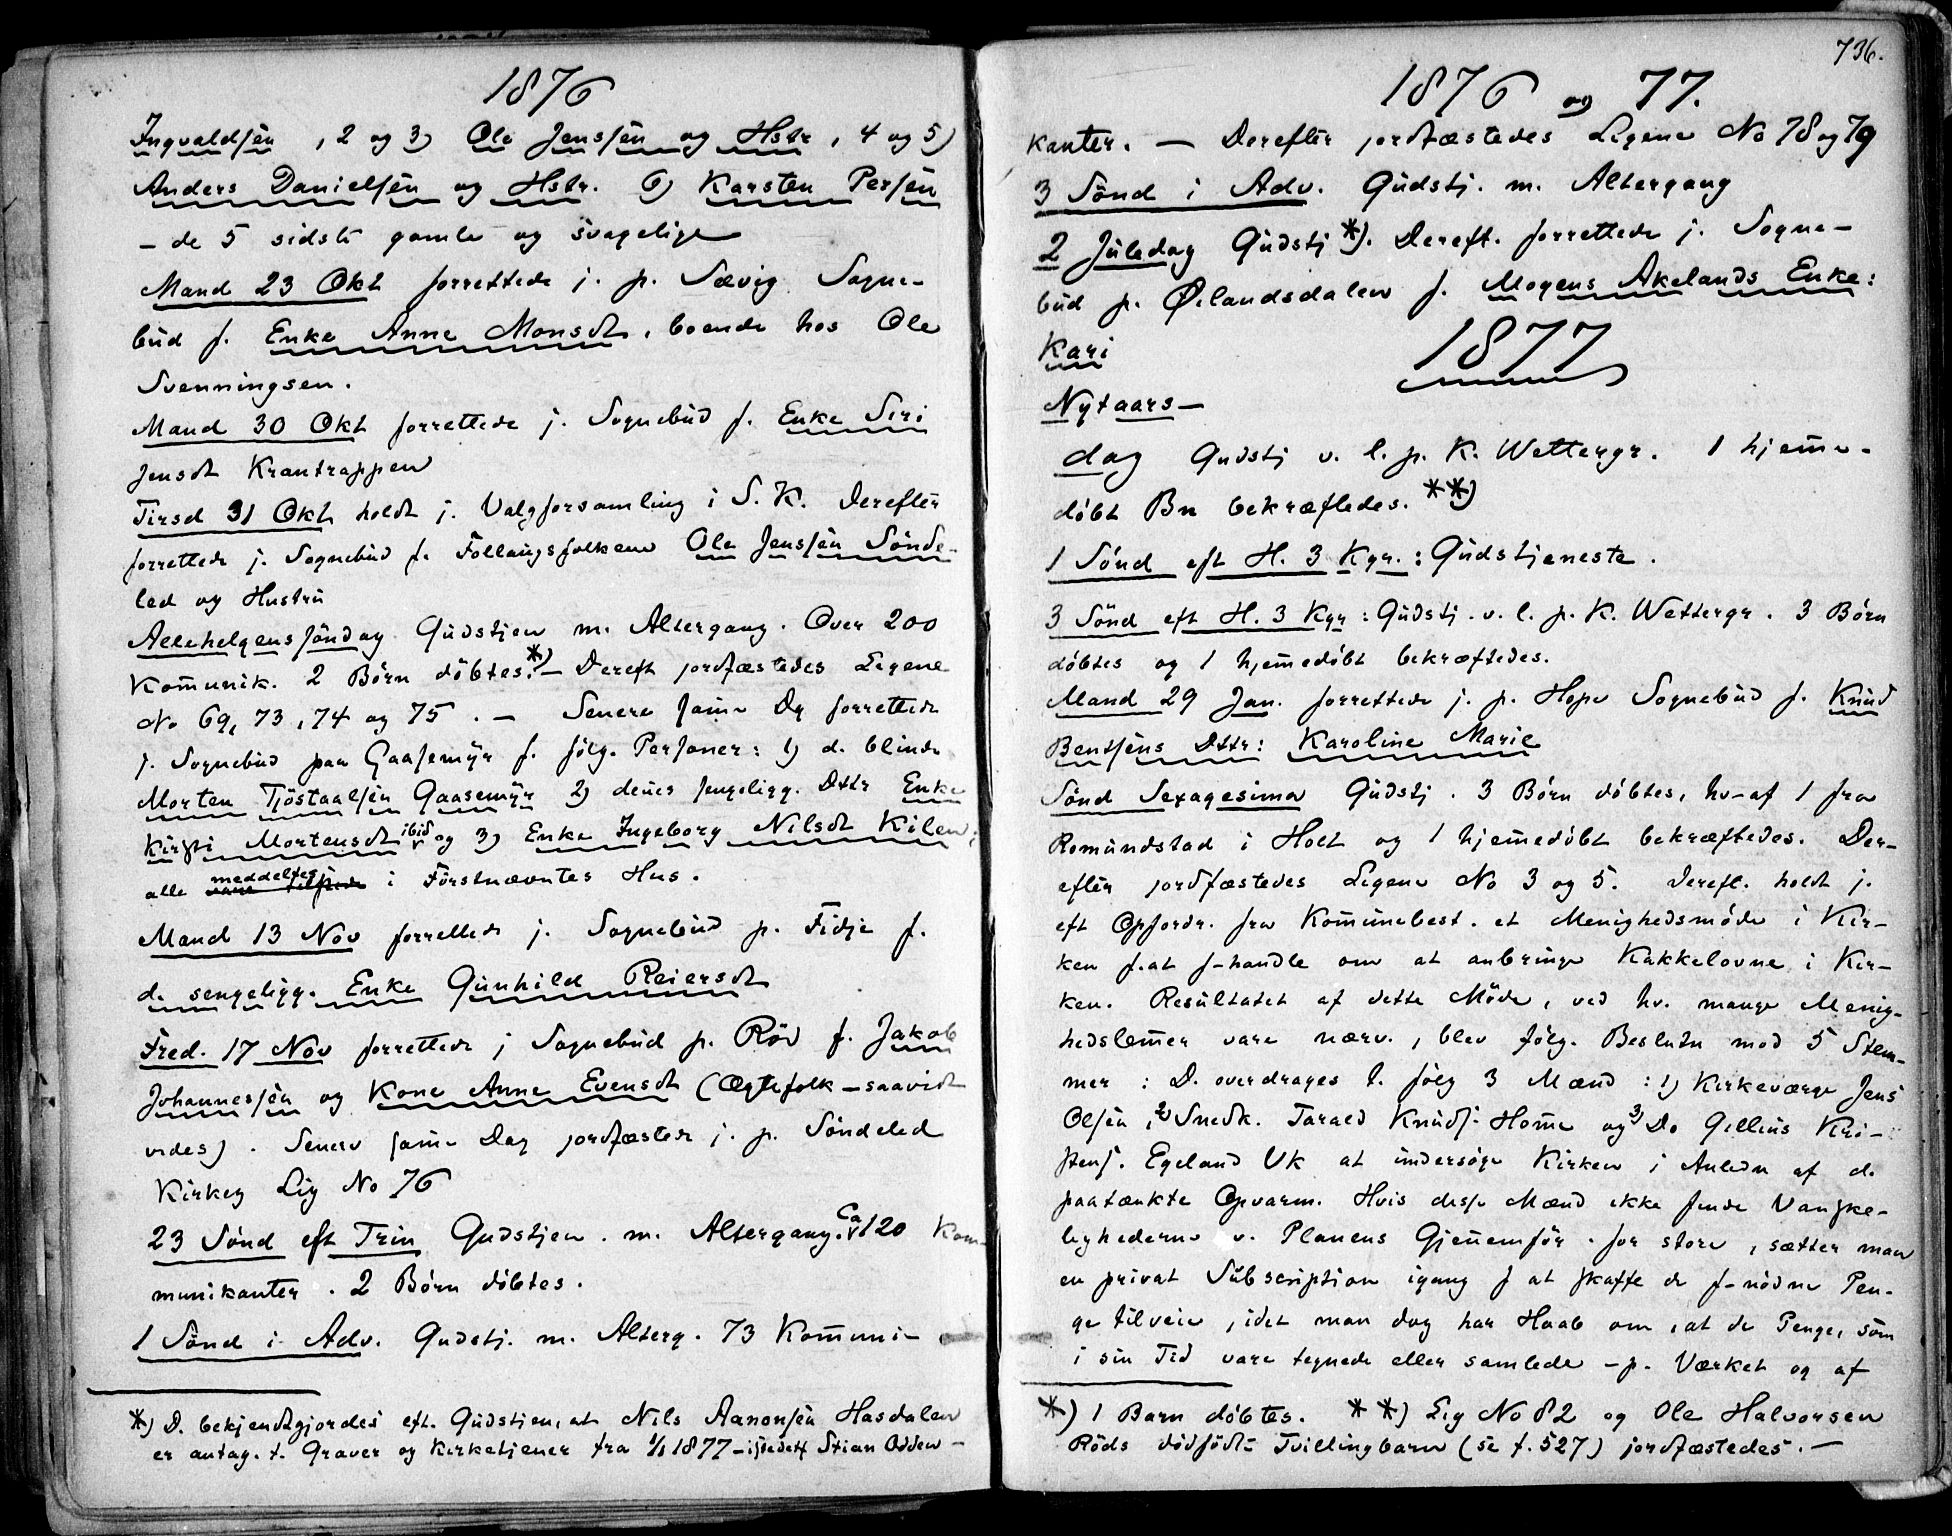 1876
Ingvaldsen, 2 og 3) Ole Jenssen og Hstr, 4 og 5)
Anders Danielsen og Hstr. 6) Karsten Persen
– de 5 sidste gamle og svagelige
Mand 23 Okt forrettede j. p. Sævig Sogne-
bud f. Enke Anne Monsdt, boende hos Ole
Svenningsen.
Mand 30 Okt forrettede j. Sognebud f. Enke Siri
Jensdt Krantrappen
Tirsd 31 Okt holdt j. Valgforsamling i S. K. Derefter
forrettede j. Sognebud f. Follaugsfolkene Ole Jenssen Sønde-
led og Hustru
Allehelgenssøndag Gudstjen m. Altergang. Over 200
Komunik. 2 Børn døbtes.*) – Dereft jordfæstedes Ligene
No 69, 73, 74 og 75. – Senere same Dg forrettede
j. Sognebud paa Gaasemyr f. følg. Personer: 1) d. blinde
Morten Tjöstaalsen Gaasemyr 2) denes sengeligg. Dttr Enke
Kirsti Mortensdt ibid og 3) Enke Ingeborg Nilsdt Kilen;
alle meddeltes i Førstnævntes Hus.
Mand 13 Nov forrettede j. Sognebud p. Fidje f.
d. sengeligg. Enke Gunhild Reiersdt
Fred. 17 Nov forrettede j Sognebud p. Röd f. Jakob
Johannessen og Kone Anne Evensdt (Ægtefolk – saavidt
vides). Senere same Dag jordfæstede j. p. Søndeled
Kirkeg Lig No 76
23 Sönd eft Trin Gudstjen. m. Altergang. Ca 120 Kom-
munikanter. 2 Børn døbtes.
1 Sönd i Adv. Gudstj. m. Alterg. 73 Komuni-
*) D. bekjendtgjordes eft. Gudstjen, at Nils Aanonsen Hasdalen
er antag. t. Graver og Kirketjener fra 1/1 1877 – istedetf Stian Odden –
736.
1876 og 77.
kanter. – Derefter jordfæstedes Ligene No 78 og 79
3 Sönd i Adv. Gudstj. m. Altergang
2 Juledag Gudstj *). Dereft. forrettede j. Sogne-
bud p. Øilandsdalen f. Mogens Akelands Enke:
Kari
1877
Nytaars-
dag Gudstj v. l. p. K. Wettergr. 1 hjeme-
døbt Bn bekræftedes. **)
1 Sönd eft H. 3 Kgr.: Gudstjeneste.
3 Sönd eft H. 3 Kgr: Gudstj. v. l. p. K. Wettergr. 3 Børn
døbtes og 1 hjemedøbt bekræftedes.
Mand 29 Jan. forrettede j. p. Hope Sognebud f. Knud
Bentsens Dttr: Karoline Marie
Sönd Sexagesima Gudstj. 3 Børn døbtes, hv-af 1 fra
Romundstad i Holt og 1 hjemedøbt bekræftedes. Der-
efter jordfæstedes Ligene No 3 og 5. Dereft. holdt j.
eft Opfordr. fra Komunebest. et Menighedsmøde i Kir-
ken f. at f-handle om at anbringe Kakkelovne i Kir-
ken. Resultatet af dette Möde, ved hv. mange Menig-
hedslemer vare nærv., blev følg. Beslutn mod 5 Stem-
mer: D. overdrages t. følg 3 Mænd: 1) Kirkeværge Jens
Olsen, 2) Snedk. Tarald Knuds. Home og 3) Do Gellius Kri-
stens. Egeland Vk at undersøge Kirken i Anledn af d.
paatænkte Opvarm. Hvis disse Mænd ikke finde Vanske-
lighederne v. Planens Gjenemför. for store, sætter man
en privat Subscription igang f at skaffe de f-nødne Pen-
ge tilveie, idet man dog har Haab om, at de Penge, som
i sin Tid vare tegnede eller samlede – p. Værket og af
*) 1 Barn døbtes. **) Lig No 82 og Ole Halvorsen
Röds dødfødte Tvillingbarn (se f. 527) jordfæstedes. –